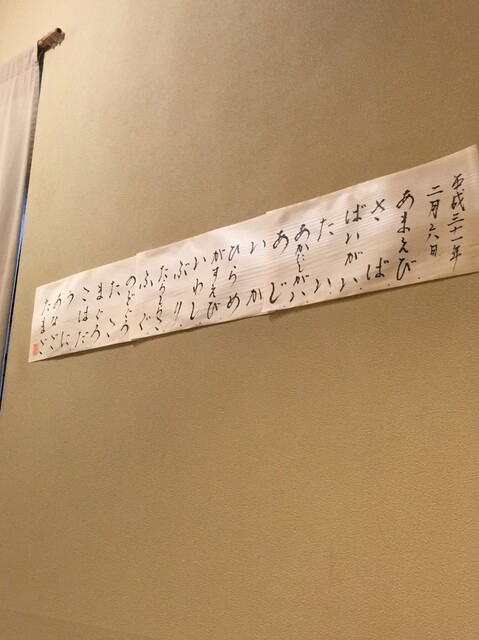 平成三十一年
二月六日
あまえび
さば
ばいがい
たい
あかにしがい
あじ
いか
ひらめ
がすえび
いわし
ぶり
たちうお
ふぐ
のどぐろ
たこ
まぐろ
こはだ
うに
うなぎ
たまご